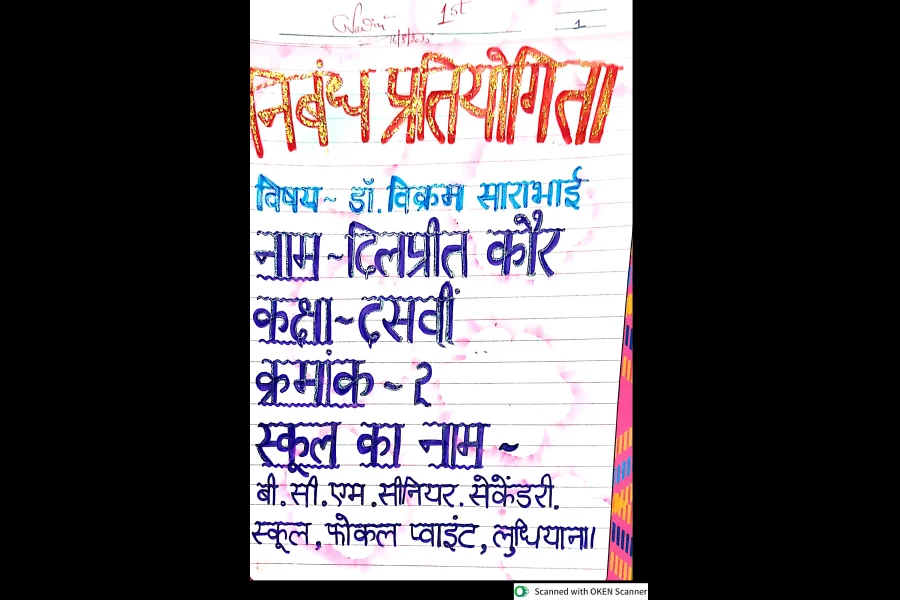 1st
1
निबंध प्रतियोगिता
विषय~ डॉ. विक्रम साराभाई
नाम~दिलप्रीत कौर
कक्षा~दसवीं
क्रमांक~२
स्कूल का नाम ~
बी.सी.एम.सीनियर.सेकेंडरी.
स्कूल, फोकल प्वाइंट, लुधियाना।
Scanned with OKEN Scanner